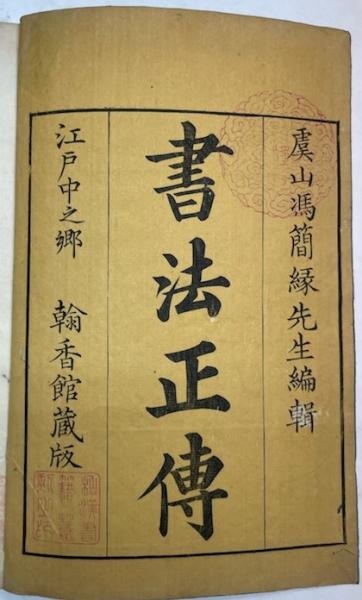 虞山馮簡緣先生編輯
書法正傳
江戸中之郷　翰香館蔵版